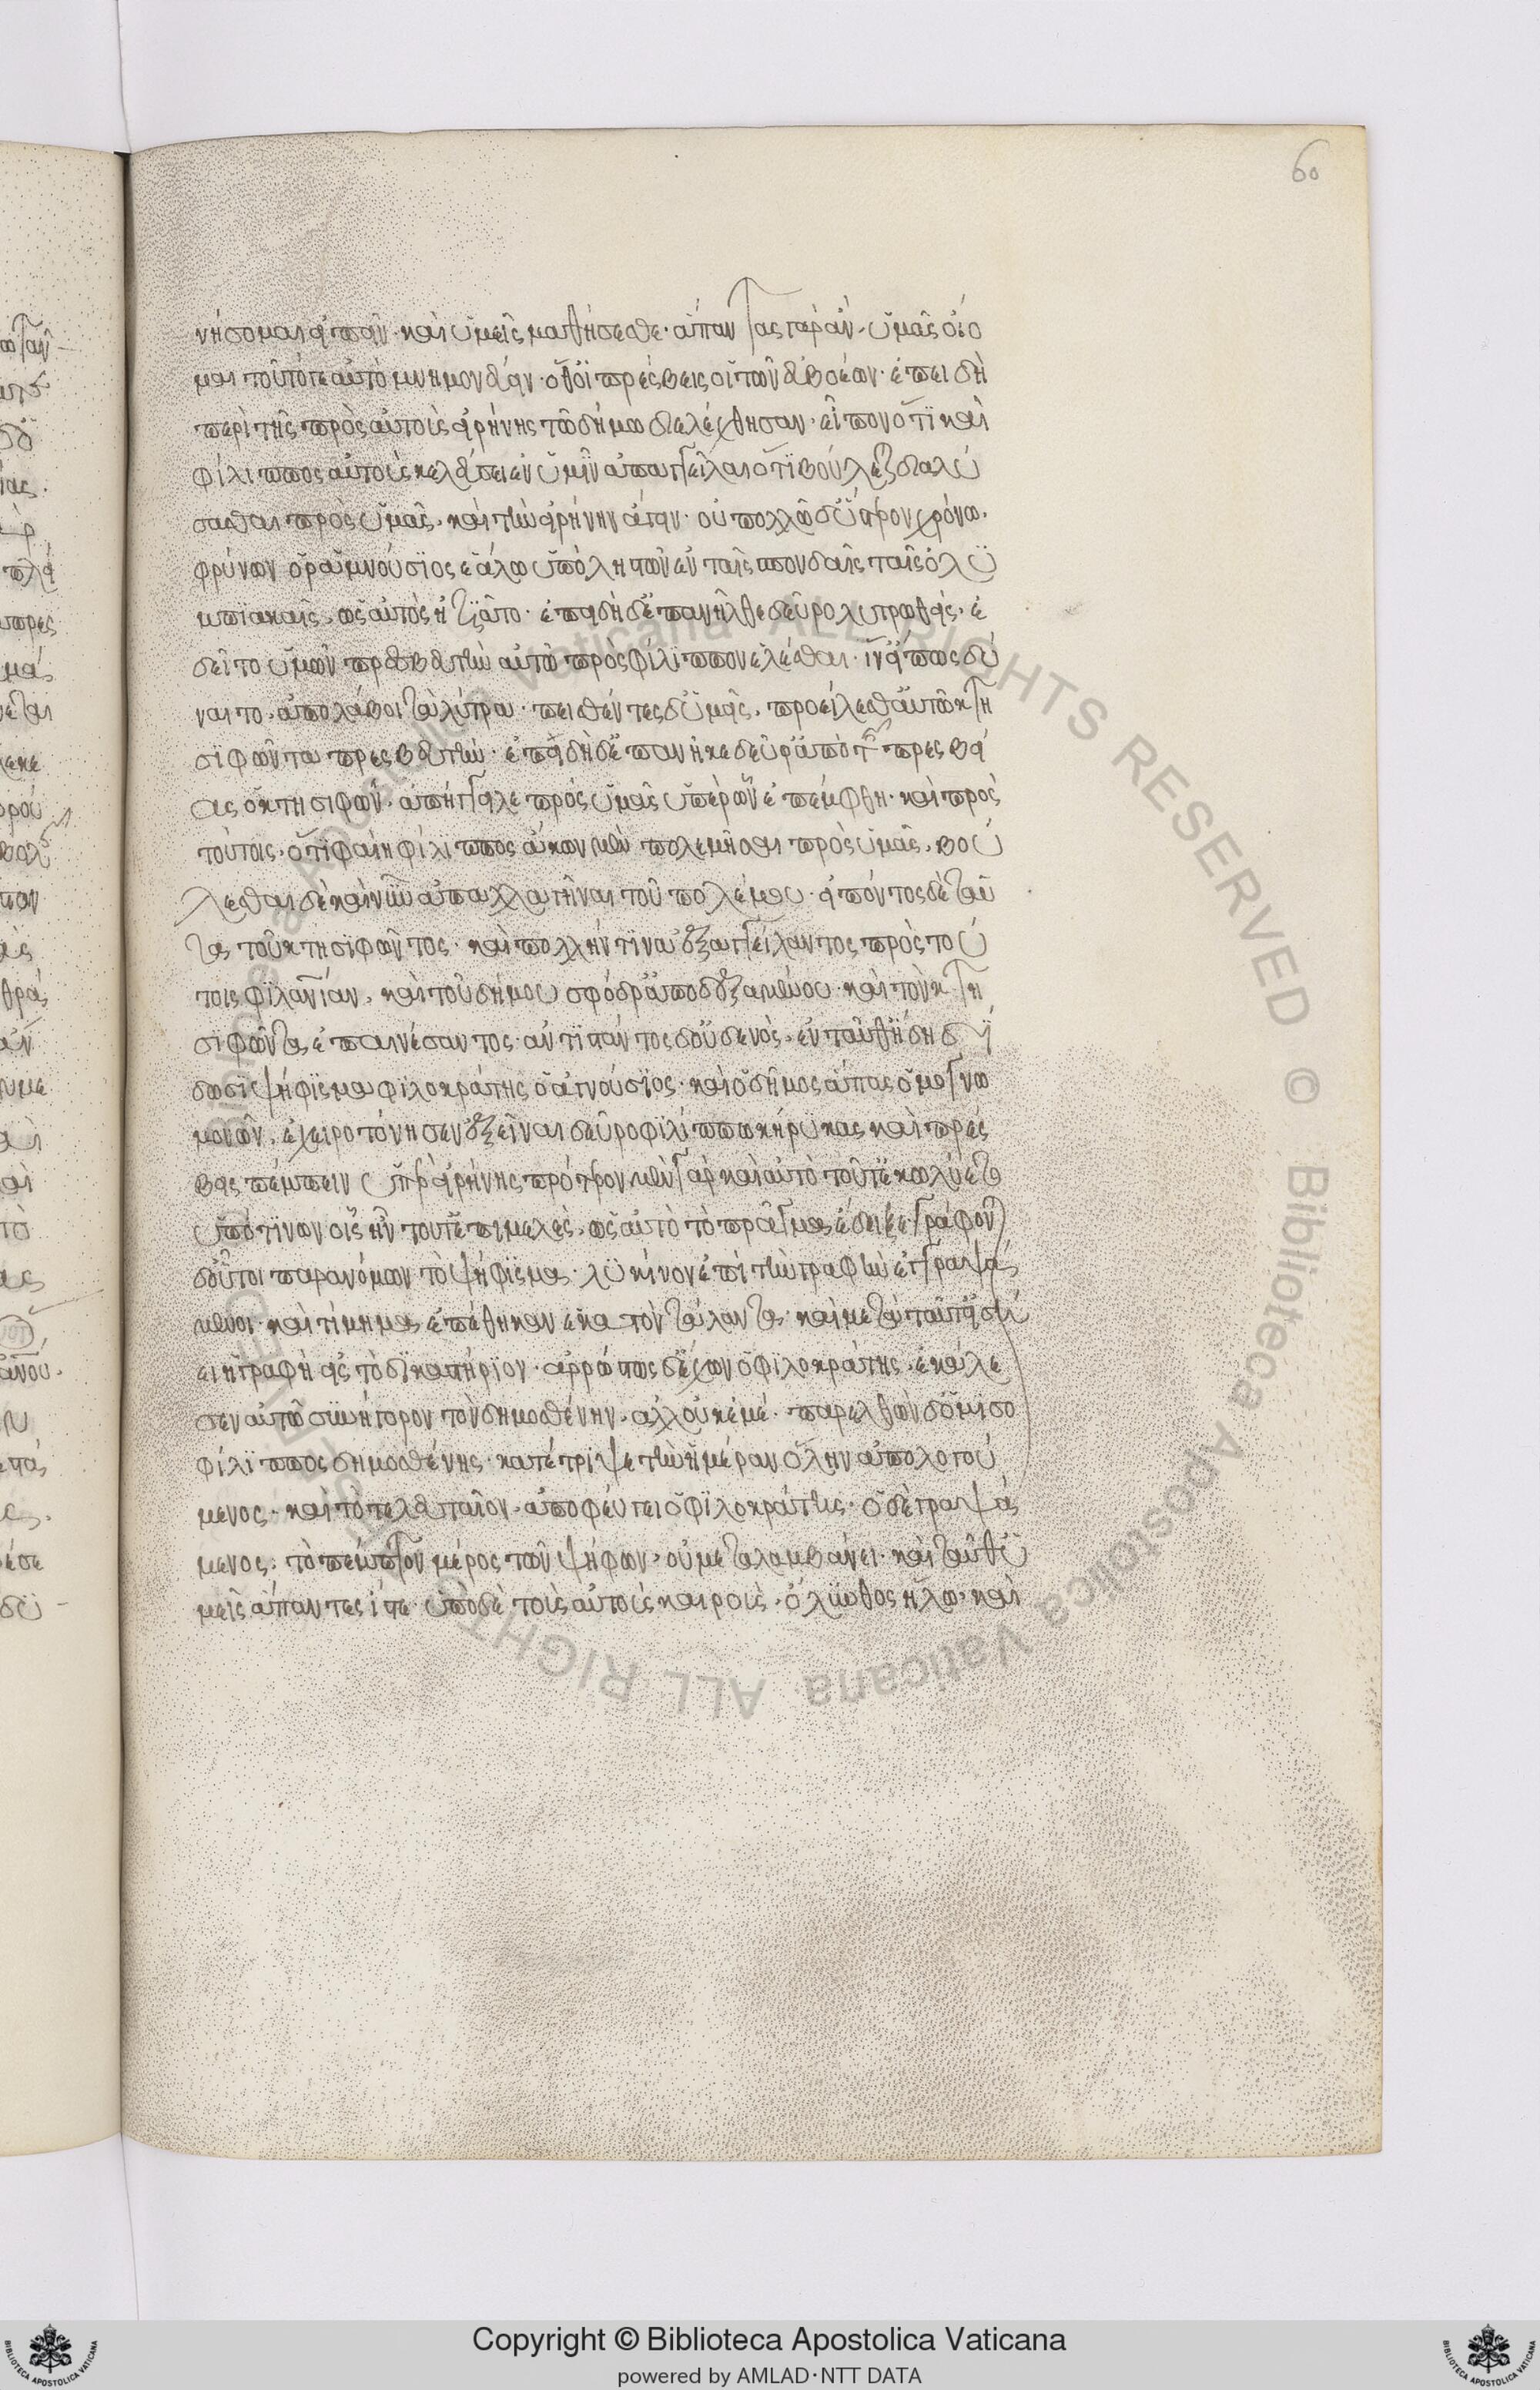 60
νήσομαι εἰπεῖν· καὶ ὑμεῖς μαθήσεσθε· ἅπαντας γὰρ ἂν ὑμᾶς οἴο
μαι τοῦτό γε αὐτὸ μνημονεύειν· ὅθ' οἱ πρέσβεις οἱ τῶν εὐβοέων· ἐπειδὴ
περὶ τῆς πρὸς αὐτοὺς εἰρήνης τῷ δήμῳ διελέχθησαν· εἶπον ὅτι καὶ
φίλιππος αὐτοὺς κελεύσειεν ὑμῖν ἀπαγγεῖλαι ὅτι βούλεται διαλύ
σασθαι πρὸς ὑμᾶς. καὶ τὴν εἰρήνην ἄγειν· οὐ πολλῷ δ' ὕστερον χρόνῳ.
φρύνων ὁ ραμνούσιος ἑάλω ὑπὸ λῃστῶν ἐν ταῖς σπονδαῖς ταῖς ὀλυ
μπιακαῖς. ὡς αὐτὸς ᾐτιᾶτο· ἐπειδὴ δ' ἐπανῆλθε δεῦρο λυτρωθείς. ἐ
δεῖτο ὑμῶν πρεσβευτὴν αὐτῷ πρὸς φίλιππον ἑλέσθαι. ἵν' εἴ πως δύ
ναιτο. ἀπολάβοι τὰ λύτρα· πεισθέντες δ' ὑμεῖς. προείλεσθ' αὐτῷ κτη
σιφῶντα πρεσβευτήν· ἐπειδὴ δ' ἐπανῆκε δεῦρ' ἀπὸ τῆς πρεσβεί
ας ὁ κτησιφῶν. ἀπήγγειλε πρὸς ὑμᾶς ὑπὲρ ὧν ἐπέμφθη· καὶ πρὸς
τούτοις. ὅτι φαίη φίλιππος ἄκων μὲν πολεμῆσαι πρὸς ὑμᾶς. βού
λεσθαι δὲ καὶ νῦν ἀπαλλαγῆναι τοῦ πολέμου· εἰπόντος δὲ ταῦ
τα τοῦ κτησιφῶντος· καὶ πολλήν τινα ἐξαγγείλαντος πρὸς τού
τοις φιλανίαν. καὶ τοῦ δήμου σφόδρ' ἀποδεξαμένου· καὶ τὸν κτη
σιφῶντα ἐπαινέσαντος· ἀντιπάντος δ' οὐδενός. ἐνταῦθ' ἤδη δί
δωσι ψήφισμα φιλοκράτης ὁ ἁγνούσιος· καὶ ὁ δῆμος ἅπας ὁμογνω
μονῶν. ἐχειροτόνησεν ἐξεῖναι δεῦρο φιλίππῳ κήρυκας καὶ πρέσ
βεις πέμπειν ὑπὲρ εἰρήνης πρότερον μὲν γὰρ καὶ αὐτὸ τοῦτ' ἐκωλύετο
ὑπό τινων οἷς ἦν τοῦτ' ἐπιμελές. ὡς αὐτὸ τὸ πρᾶγμα ἔδειξε· γράφονται
δ' οὗτοι παρανόμων τὸ ψήφισμα· λυκῖνον ἐπὶ τὴν γραφὴν ἐπιγραψά
μενοι· καὶ τίμημα ἐπέθηκαν ἑκατὸν τάλαντα· καὶ μετὰ ταῦτ' εἰσῄ
ει ἡ γραφὴ εἰς τὸ δικαστήριον· ἀρρώστως δ' ἔχων ὁ φιλοκράτης. ἐκάλε
σεν αὐτῷ συνήγορον τὸν δημοσθένην. ἀλλ' οὐκ ἐμέ. παρελθὼν δ' ὁ μισο
φίλιππος δημοσθένης. κατέτριψε τὴν ἡμέραν ὅλην ἀπολογού
μενος· καὶ τὸ τελευταῖον. ἀποφεύγει ὁ φιλοκράτης· ὁ δὲ γραψά
μενος. τὸ πέμπτον μέρος τῶν ψήφων. οὐ μεταλαμβάνει· καὶ ταῦθ' ὑ
μεῖς ἅπαντες ἴστε· ὑπὸ δὲ τοὺς αὐτοὺς καιρούς. ὄλυνθος ἥλω. καὶ
Copyright © Biblioteca Apostolica Vaticana
powered by AMLAD·NTT DATA